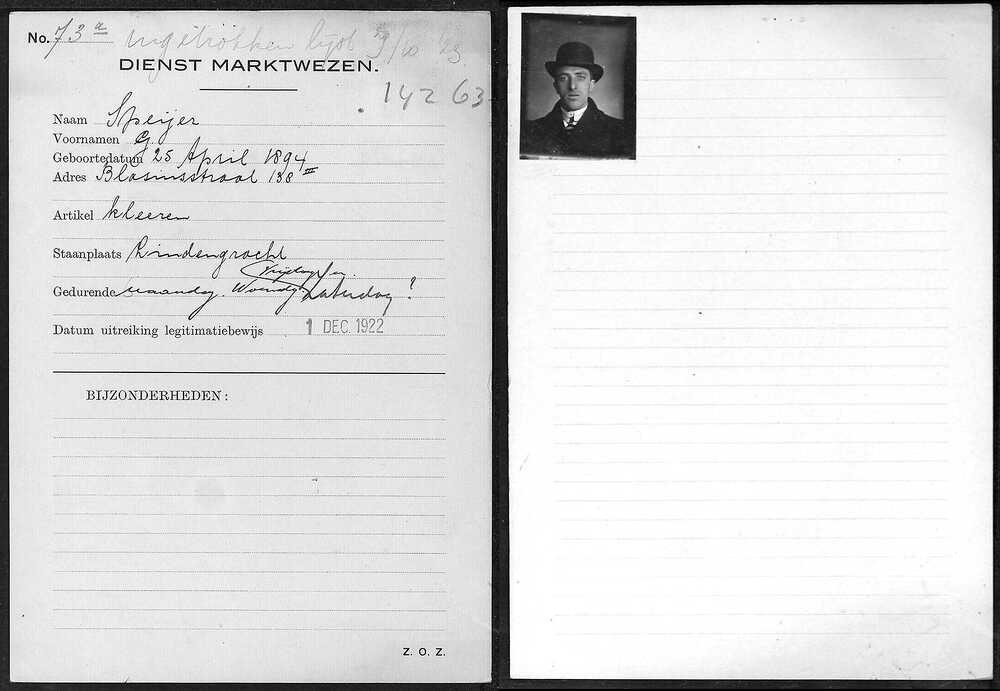 No. 73 a ingetrokken lijst 9/10 '23
DIENST MARKTWEZEN.
142 63
Naam Speijer
Voornamen G
Geboortedatum 25 April 1894
Adres Blasiusstraat 138 III
Artikel kleeren
Staanplaats Lindengracht
Vrijdag en
Gedurende Maandag. Woensdg. Zaterdag!
Datum uitreiking legitimatiebewijs 1 DEC. 1922
BIJZONDERHEDEN:
Z. O. Z.